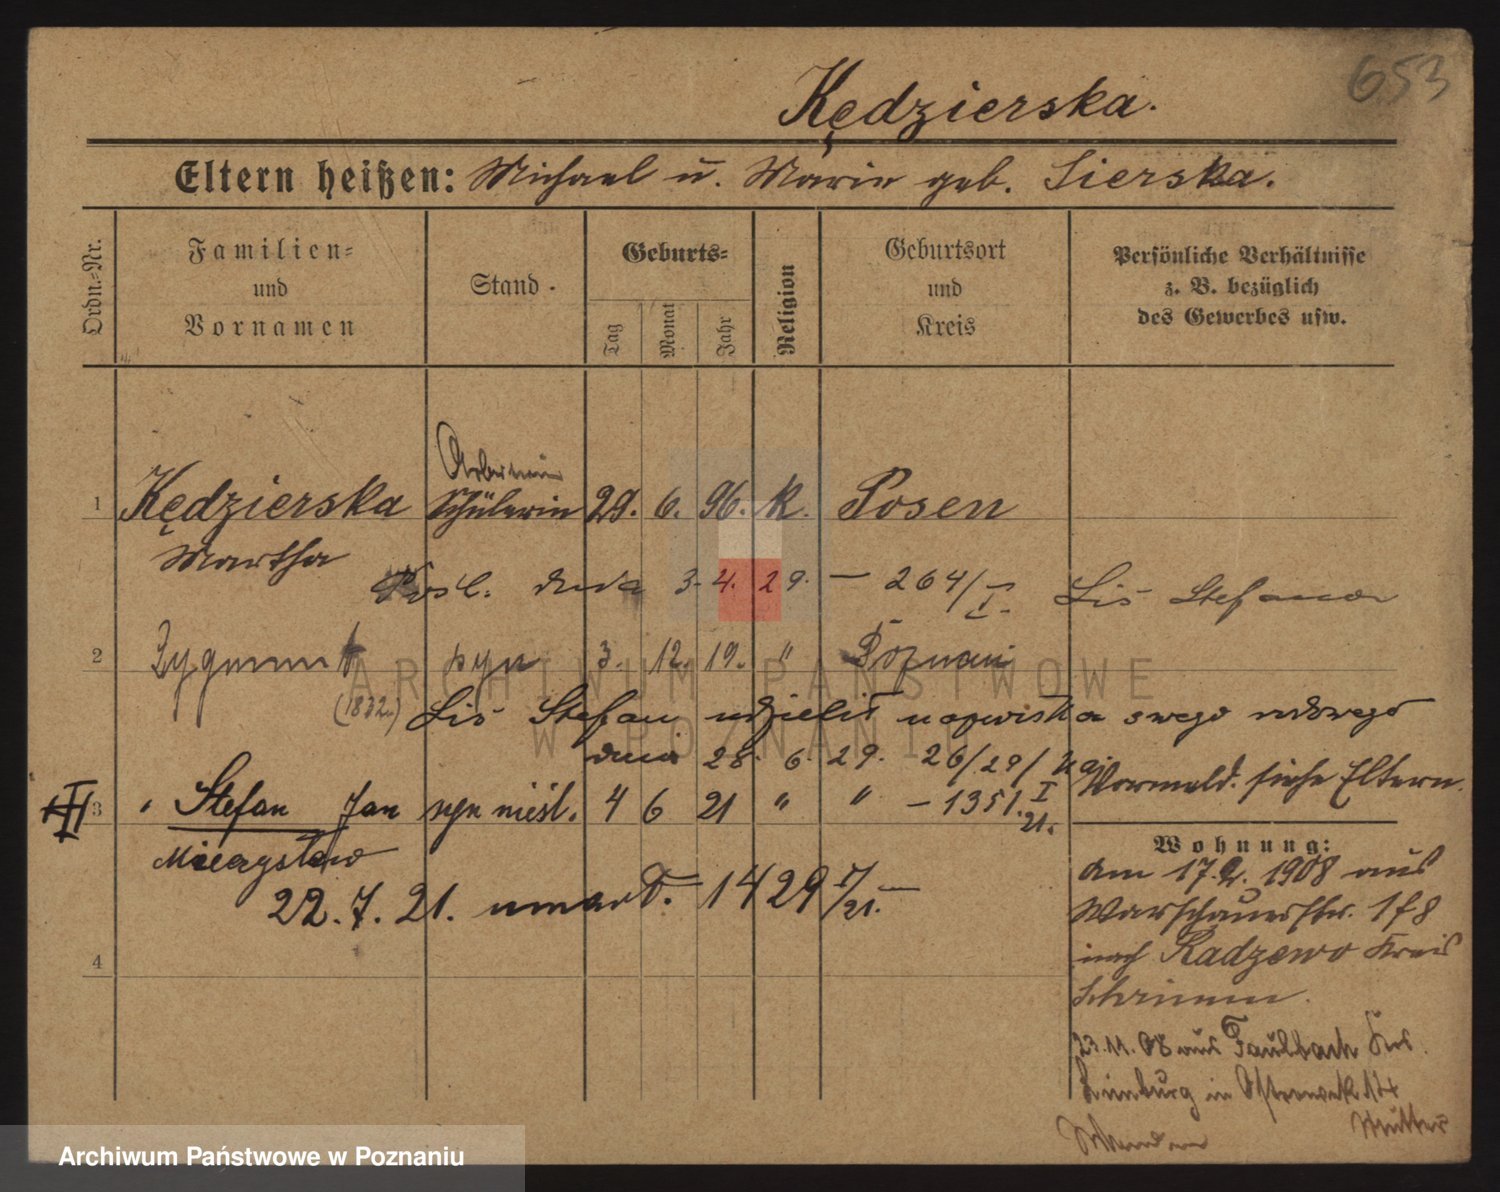 653
Kędzierska.
Eltern heißen: Michael u. Marie geb. Sierska.
Ordn.-Nr.
Familien-
und
Vornamen
Stand
Geburts-
Tag
Monat
Jahr
Religion
Geburtsort
und
Kreis
Persönliche Verhältnisse
z. B. bezüglich
des Gewerbes usw.
Arbeiterin
1 Kędzierska Schülerin 29. 6. 96. k. Posen
Martha
Pośl. dnia 3. 4. 29. — 264/I Liś Stefana
2 Zygmunt syn 3. 12. 19. " Poznań
(1832.) Liś Stefan udzielił nazwiska swego
dnia 28. 6. 29. 26/29/
Vormeld. siehe Eltern.
3 " Stefan Jan syn nieśl. 4 6 21 " " — 1351. I/21.
Mieczysław
22. 7. 21. umarł. 1429 I/21. —
4
Wohnung:
Am 17.2. 1908 aus
Warschauerstr. 178
nach Radzewo Kreis
Schrimm.
23.11.08 aus Faulbach Krs.
Limburg in Ostrowek 14
Mutter
ARCHIWUM PAŃSTWOWE
W POZNANIU
Archiwum Państwowe w Poznaniu